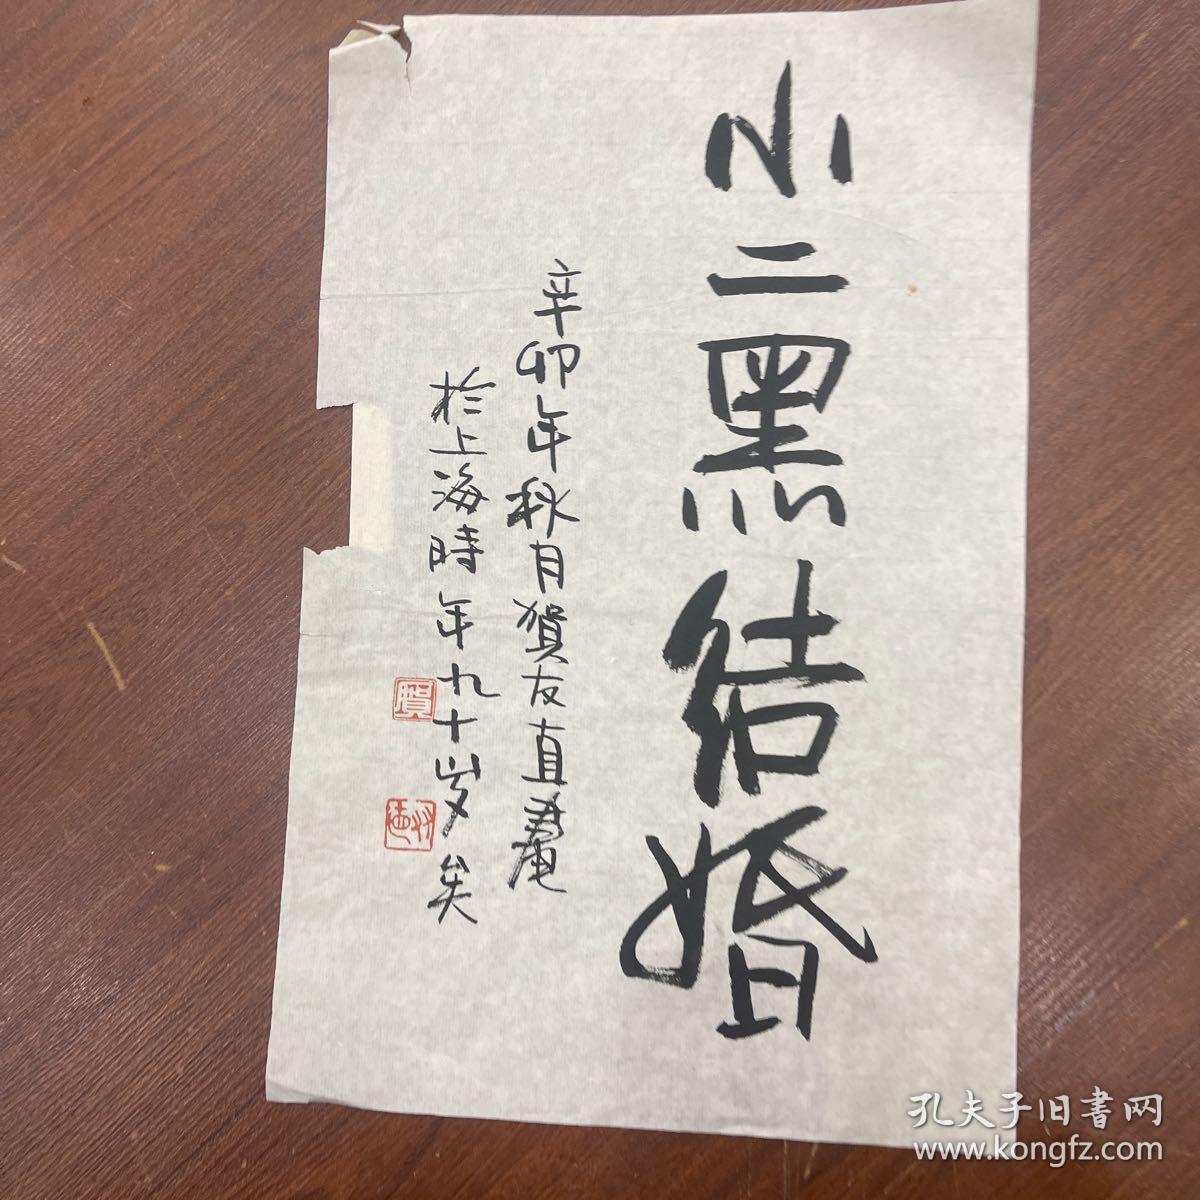 小二黑结婚
辛卯年秋月賀友直
於上海時年九十岁矣
賀
孔夫子旧書网
www.kongfz.com